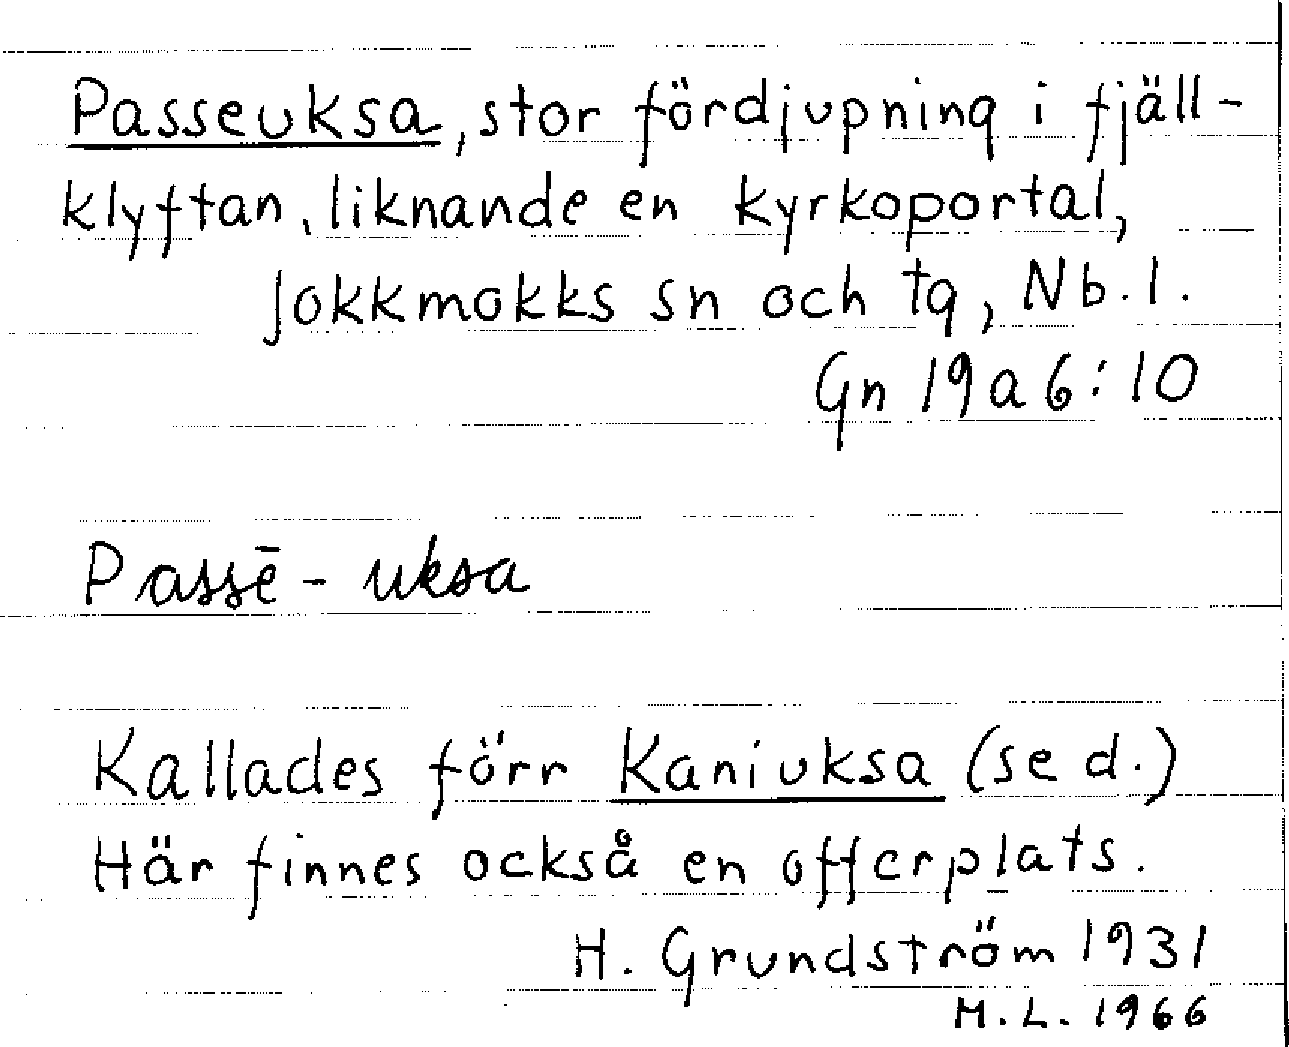 Passeuksa, stor fördjupning i fjäll-
klyftan, liknande en kyrkoportal,
Jokkmokks sn och tg, Nb.l.
Gn 19a6:10
Passē-uksa
Kallades förr Kaniuksa (se d.)
Här finnes också en offerplats.
H. Grundström 1931
M.L. 1966